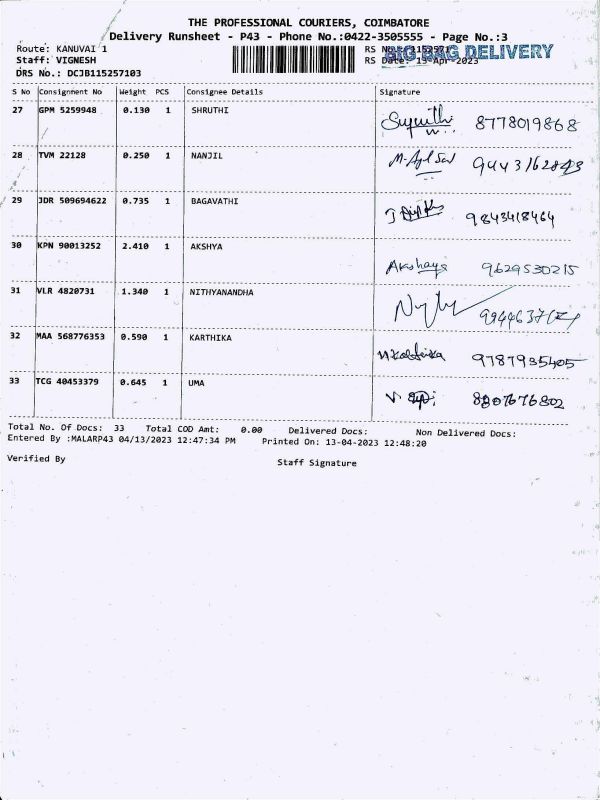 THE PROFESSIONAL COURIERS, COIMBATORE
Delivery Runsheet - P43 - Phone No.:0422-3505555 - Page No.:3
Route: KANUVAI 1
RS
BIG BAG DELIVERY
Staff: VIGNESH
RS Date: 13-Apr-2023
DRS No.: DCJB115257103
S No Consignment No Weight PCS Consignee Details Signature
27 GPM 5259948 0.130 1 SHRUTHI 8778019868
28 TVM 22128 0.250 1 NANJIL
29 JDR 509694622 0.735 1 BAGAVATHI 9843418464
30 KPN 90013252 2.410 1 AKSHYA Akshaya 9629530215
31 VLR 4820731 1.340 1 NITHYANANDHA
32 MAA 568776353 0.590 1 KARTHIKA 9787935405
33 TCG 40453379 0.645 1 UMA 8807676802
Total No. Of Docs: 33 Total COD Amt: 0.00 Delivered Docs: Non Delivered Docs:
Entered By :MALARP43 04/13/2023 12:47:34 PM Printed On: 13-04-2023 12:48:20
Verified By Staff Signature